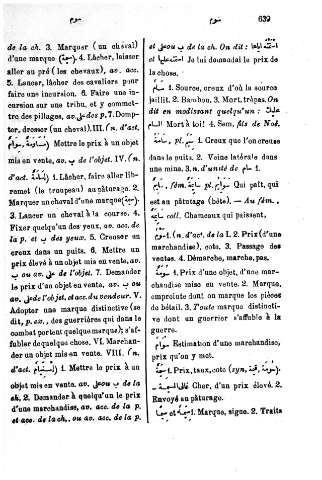 سوم
سوم
639
de la ch. 3. Marquer (un cheval)
d'une marque (سومة). 4. Lâcher, laisser
aller au pré (les chevaux), av. acc.
5. Lancer, lâcher des cavaliers pour
faire une incursion. 6. Faire une in-
cursion sur une tribu, et y commet-
tre des pillages, av. على des p. 7. Domp-
ter, dresser (un cheval). III. (n. d'act.
Mettre le prix à un objet
mis en vente, av. ب de l'objet. IV. (n.
d'act. 1. Lâcher, faire aller lib-
rement (le troupeau) au pâturage. 2.
Marquer un cheval d'une marque
3. Lancer un cheval à la course. 4.
Fixer quelqu'un des yeux, av. acc. de
la p. et ب des yeux. 5. Creuser un
creux dans un puits. 6. Mettre un
prix élevé à un objet mis en vente, av.
ب ou av. على de l'objet. 7. Demander
le prix d'un objet en vente, av. ب ou
av. على de l'objet, et acc. du vendeur. V.
Adopter une marque distinctive (se
dit, p. ex., des guerriers qui dans le
combat portent quelque marque); s'af-
fubler de quelque chose. VI. Marchan-
der un objet mis en vente. VIII. (n.
d'act. 1. Mettre le prix à un
objet mis en vente, av. على ou ب de la
ch. 2. Demander à quelqu'un le prix
d'une marchandise, av. acc. de la p.
et acc. de la ch., ou av. acc. de la p.
et ب de la ch. On dit :
Je lui demandai le prix de
la chose.
سام 1. Source, creux d'où la source
jaillit. 2. Bambou. 3. Mort, trépas. On
dit en modisant quelqu'un :
Mort à toi! 4. Sem, fils de Noé.
سامة, pl. 1. Creux que l'on creuse
dans le puits. 2. Veine latérale dans
une mine. 3. n. d'unité de سام 1.
fém. pl. Qui paît, qui
est au pâturage (bête). — Au fém.,
coll. Chameaux qui paissent.
سوم 1. (n. d'act. de la I. 2. Prix (d'une
marchandise), coût. 3. Passage des
ventes. 4. Démarche, marche, pas.
سومة 1. Prix d'une objet, d'une mar-
chandise mise en vente. 2. Marque,
empreinte dont on marque les pièces
de bétail. 3. Toute marque distincti-
ve dont un guerrier s'affuble à la
guerre.
Estimation d'une marchandise,
prix qu'on y met.
1. Prix, taux, cote (syn.
Cher, d'un prix élevé. 2.
Envoyé au pâturage.
1. Marque, signe. 2. Traits